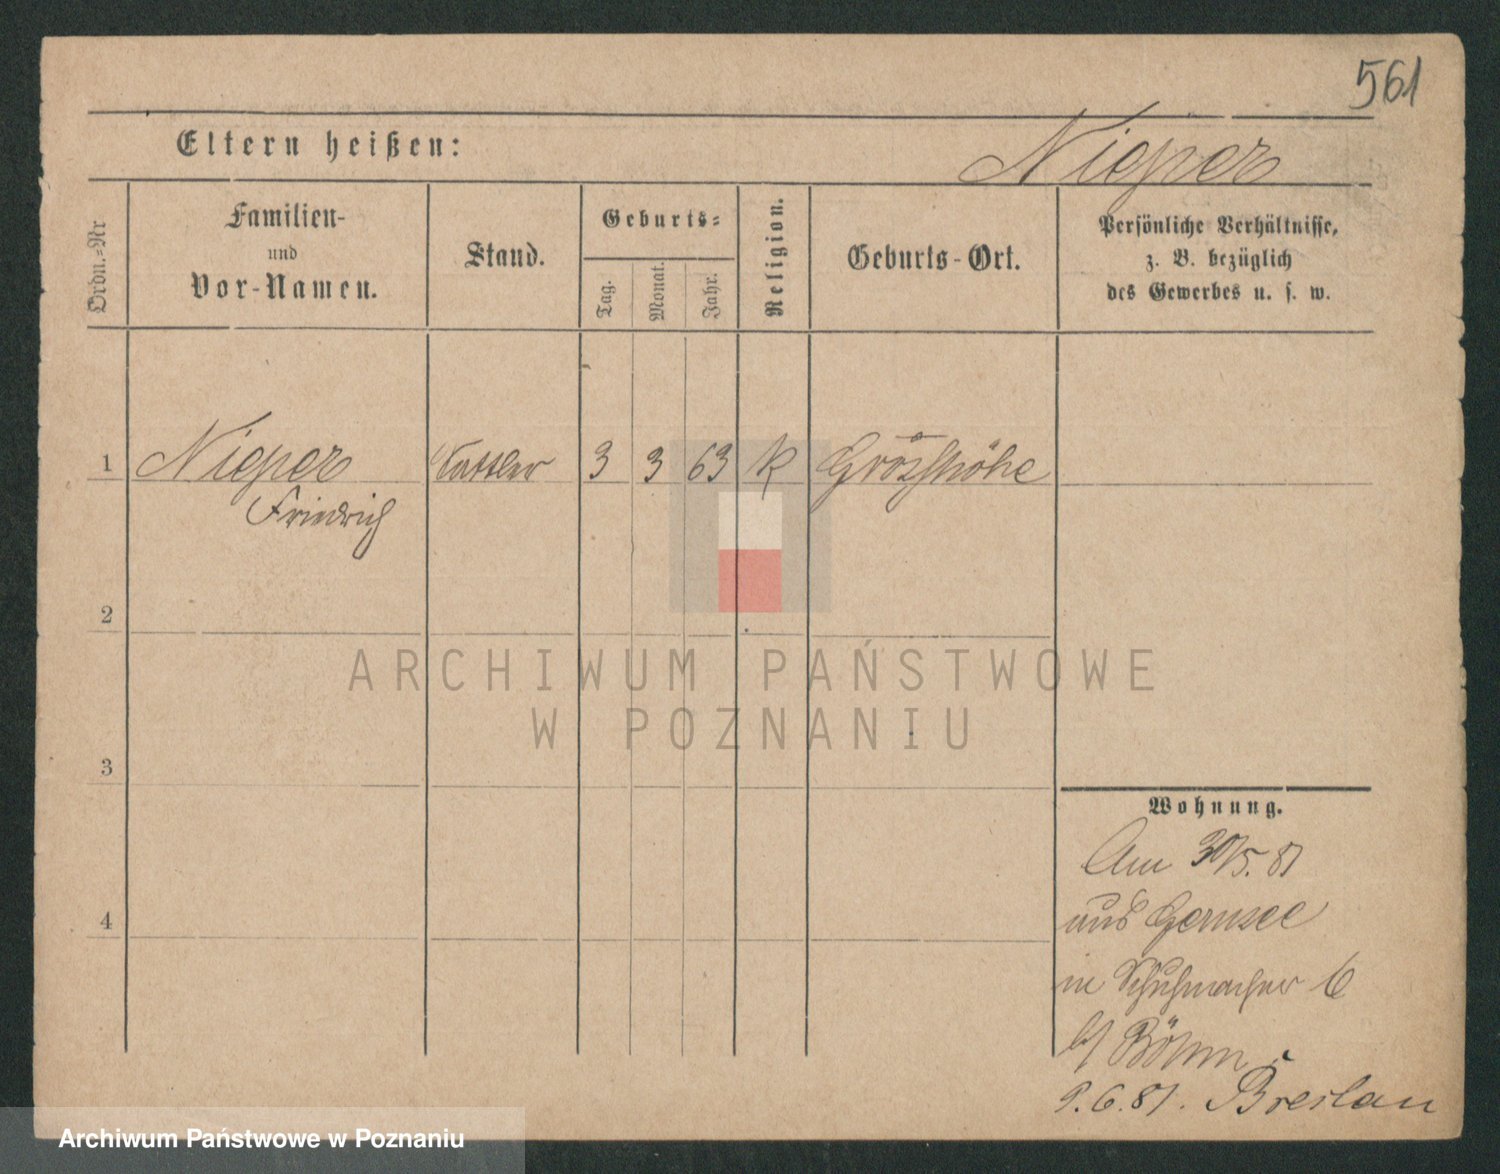 561
Eltern heißen:
Nieper
Ordn.-Nr
Familien-
und
Vor-Namen.
Stand.
Geburts-
Tag.
Monat.
Jahr.
Religion.
Geburts-Ort.
Persönliche Verhältnisse,
z. B. bezüglich
des Gewerbes u. s. w.
1
Nieper
Friedrich
Sattler
3
3
63
k
2
3
4
Wohnung.
Am 30/5. 81
aus
in Schuhmacher 6
b/ Böhm
9.6.81. Breslau
ARCHIWUM PAŃSTWOWE
W POZNANIU
Archiwum Państwowe w Poznaniu